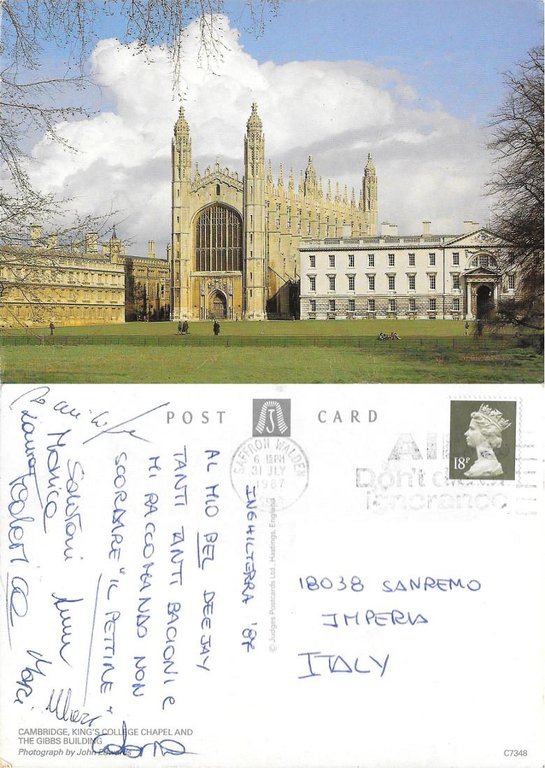 POST CARD
SAFFRON WALDEN
6 15PM
31 JLY
1987
AIDS
Don't die of
ignorance
18P
INGHILTERRA '87
AL MIO BEL DEEJAY
TANTI TANTI BACIONI E
MI RACCOMANDO NON
SCORDARE "IL PETTINE"
Santoni
Monica
Federica
© Judges Postcards Ltd., Hastings, England
18038 SANREMO
IMPERIA
ITALY
CAMBRIDGE, KING'S COLLEGE CHAPEL AND
THE GIBBS BUILDING
Photograph by John Edwards
C7348